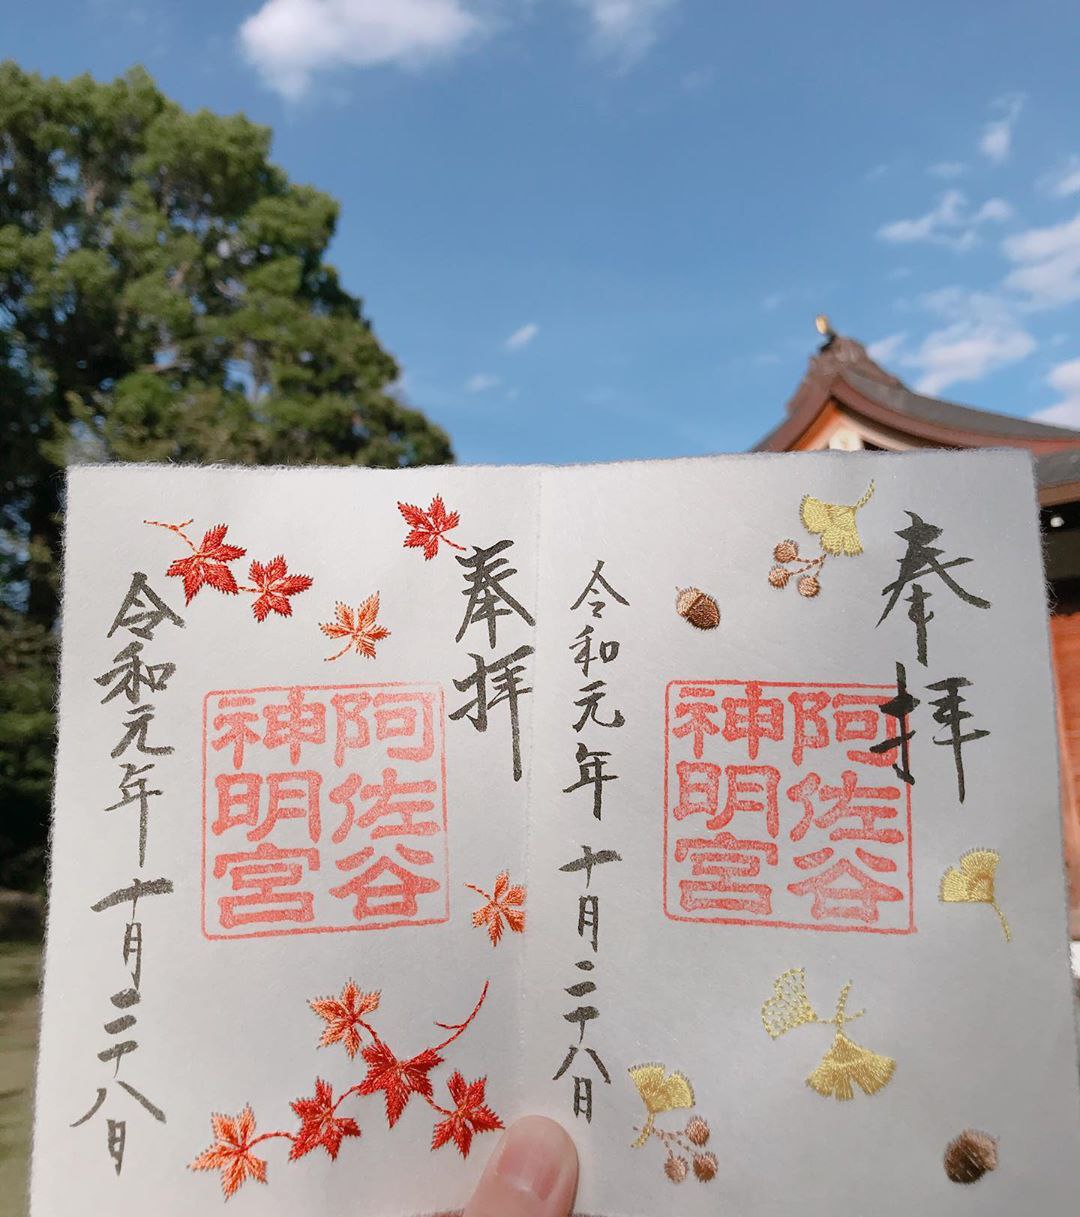 奉拝
阿佐谷
神明宮
令和元年十月二十八日
奉拝
阿佐谷
神明宮
令和元年十月二十八日